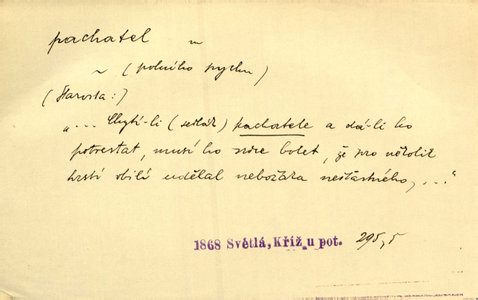 pachatel m
~ (polního pychu)
(Starosta:)
"... Chytí-li (sedlák) pachatele a dá-li ho
potrestat, musí ho srdce bolet, že pro několik
hrstí obilí udělal nebožáka nešťastného, ..."
1868 Světlá, Kříž u pot. 295,5